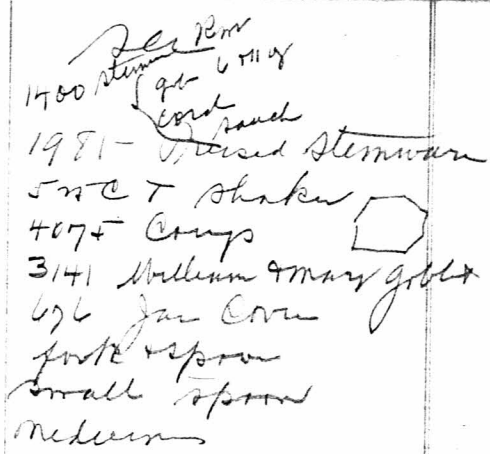 Rm
1400 stem gob 6 oz
cord
sauch
1981- Pressed Stemware
5 nCT Shaker
4075 Comp
3141 William & Mary goblet
676 Jar Cover
fork & spoon
small spoon